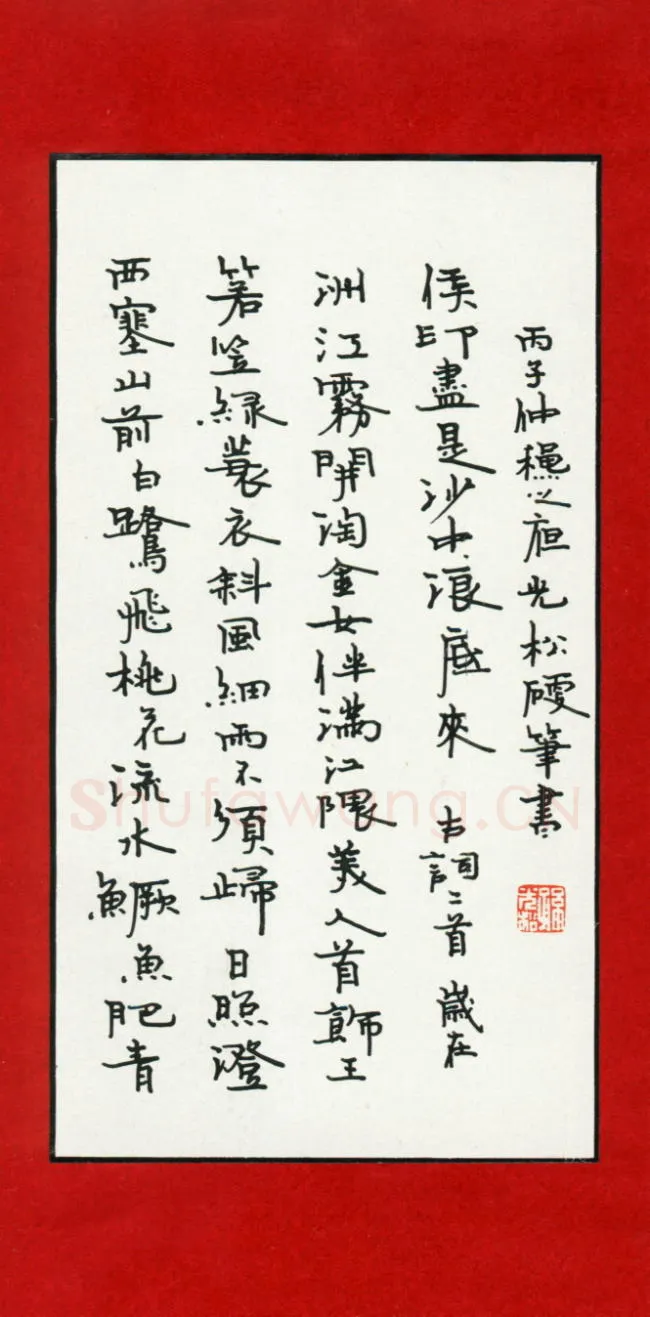 西塞山前白鷺飛桃花流水鱖魚肥青
箬笠緑蓑衣斜風細雨不須歸 日照澄
洲江霧開淘金女伴滿江隈美人首飾王
侯印盡是沙中浪底來 古詞二首 歲在
丙子仲穐之 光松硬筆書
Shufawang.CN